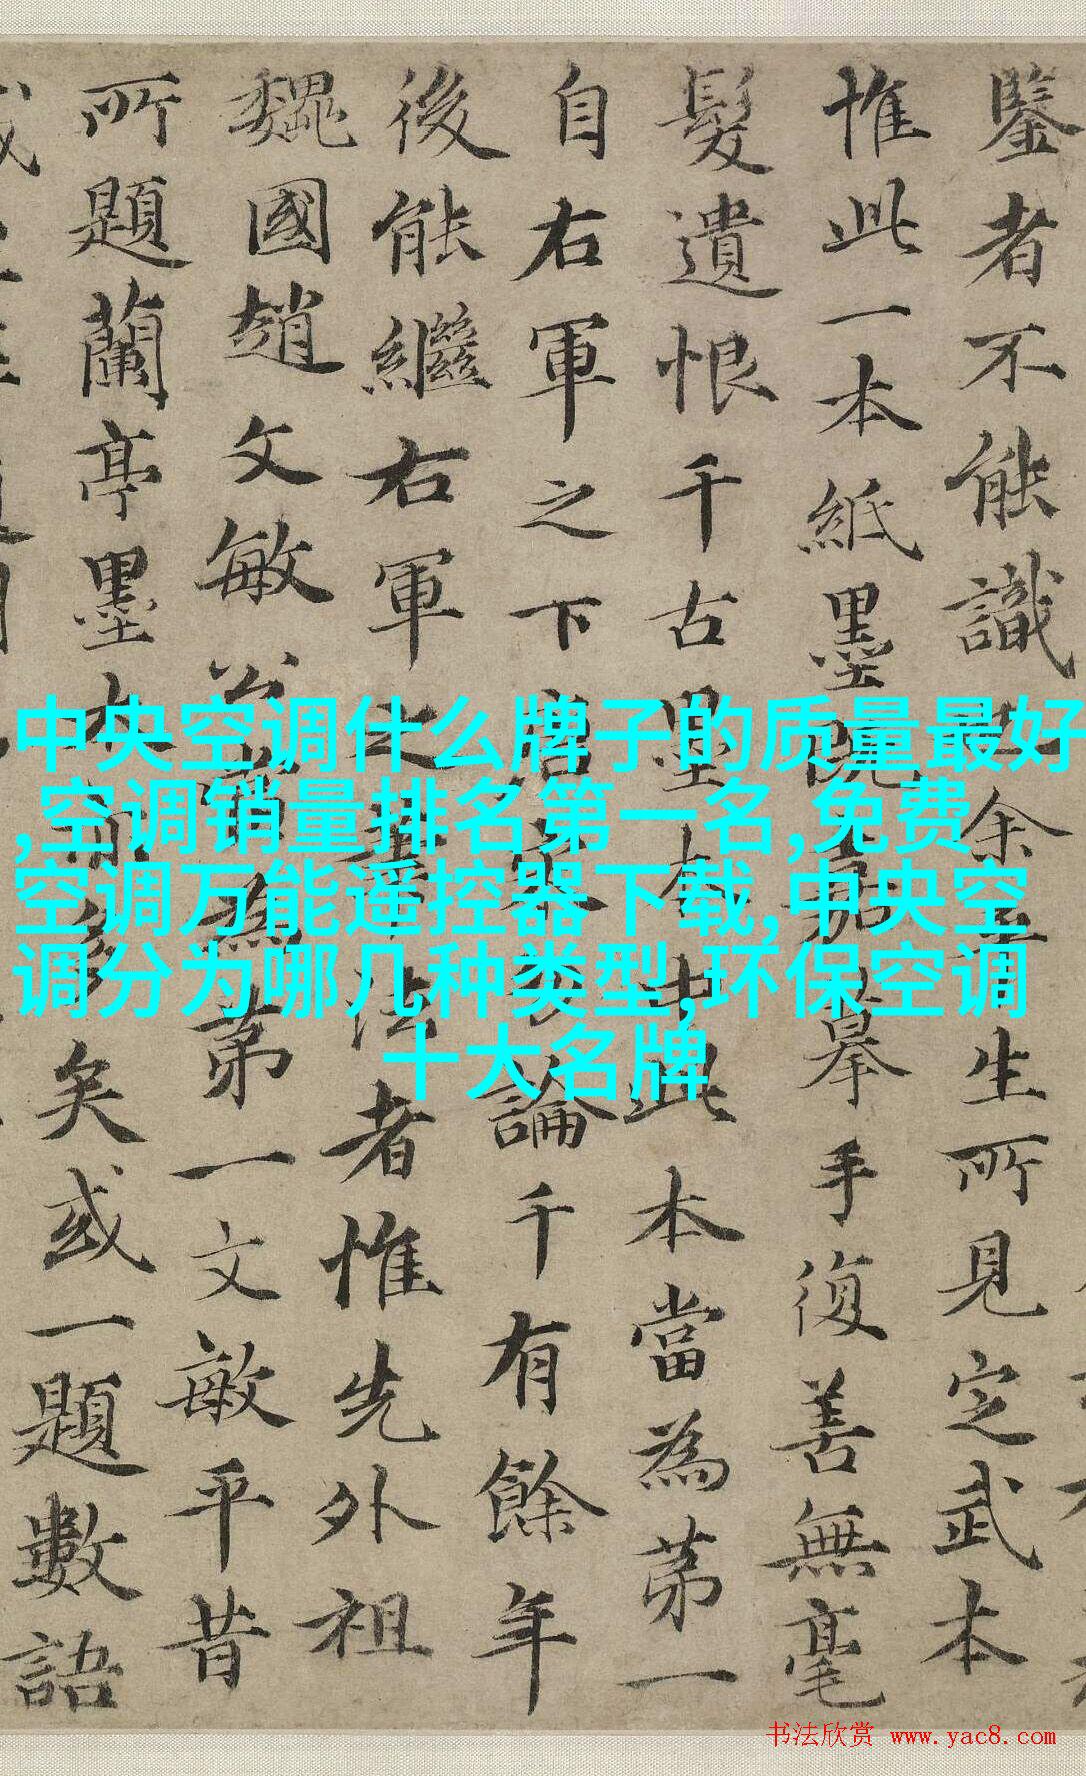 鑒者不能識余平生所見定武本
惟此一本紙墨既摹手復善無毫
髮遺恨千古墨本中此本當為第一
自右軍之下唐宋勿論千有餘年
後能繼右軍之筆法者惟先外祖
魏國趙文敏公實為第一文敏平昔
所題蘭亭墨本亦多矣或一題數語
中央空调什么牌子的质量最好
,空调销量排名第一名,免费
空调万能遥控器下载,中央空
调分为哪几种类型,环保空调
十大名牌
书法欣赏 www.yac8.com